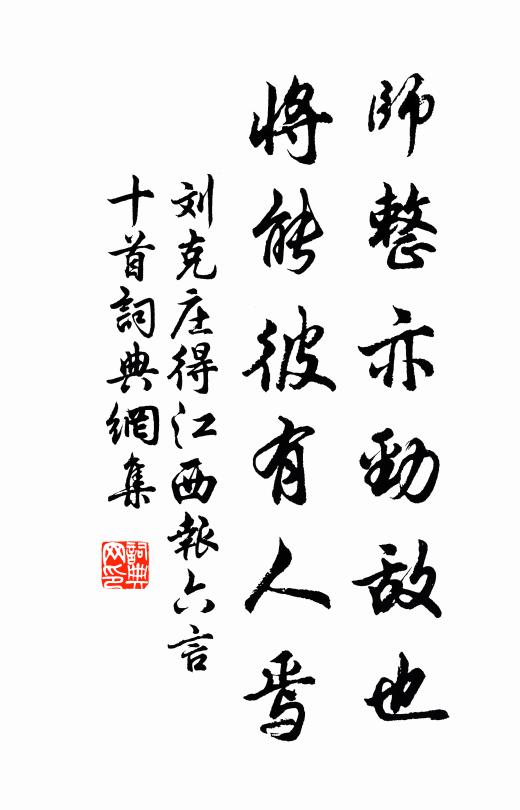 師整亦勁敌也
將能彼有人焉
刘克庄得江西報六言
十首詞典網集
詞典网印